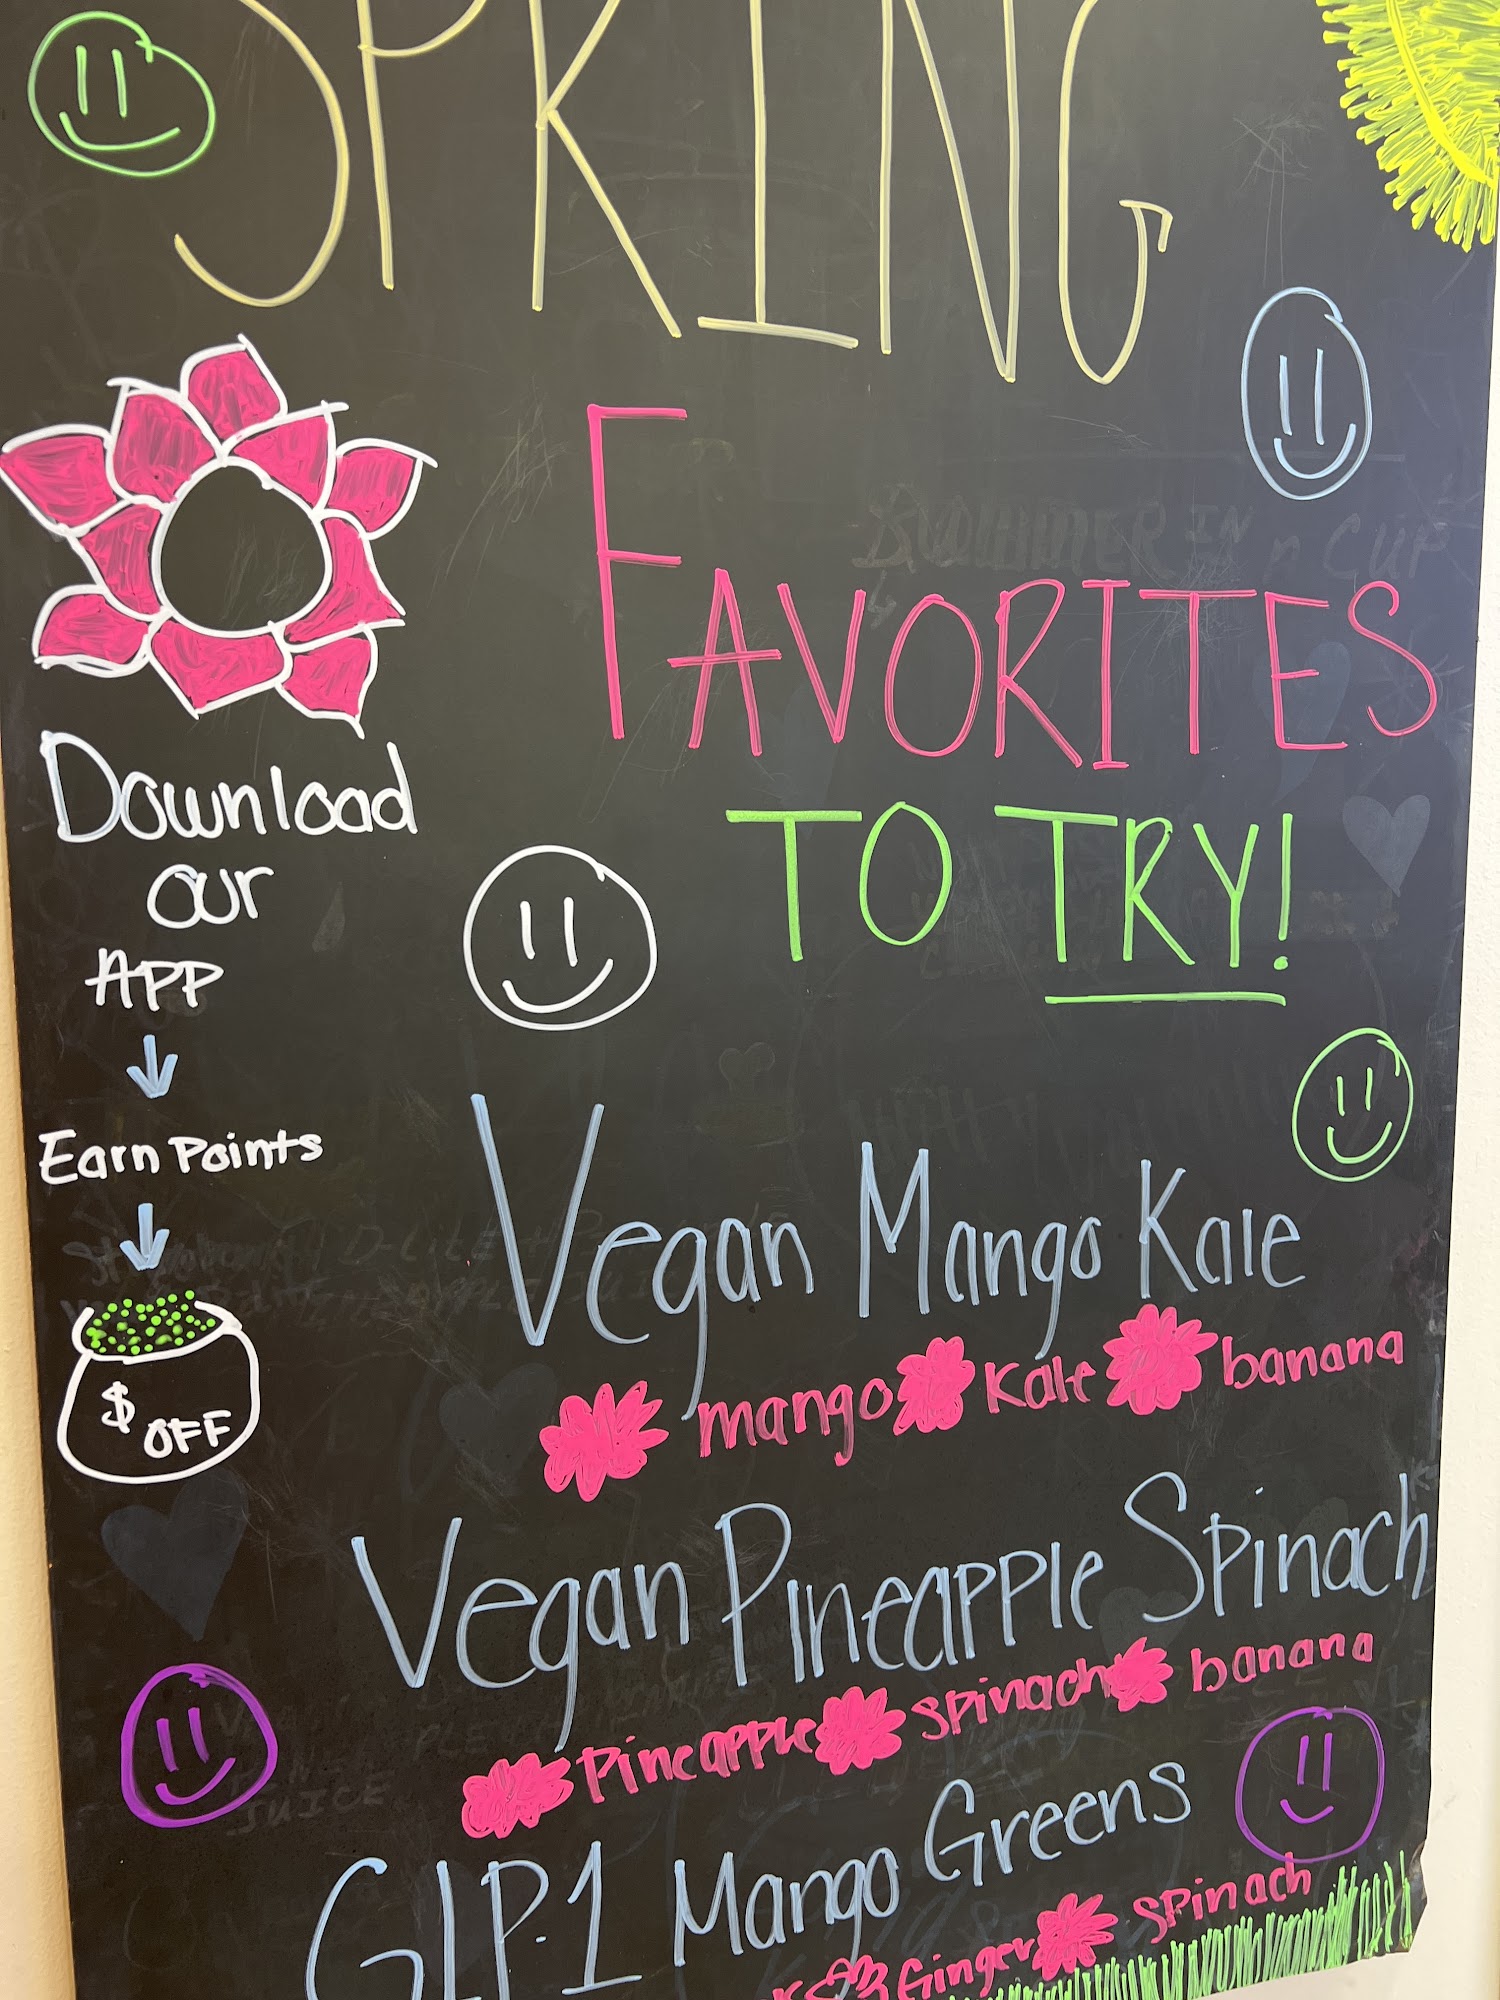 SPRING
FAVORITES
TO TRY!
Download
our
APP
Earn Points
$ OFF
Vegan Mango Kale
mango Kale banana
Vegan Pineapple Spinach
Pineapple spinach banana
GLP-1 Mango Greens
Ginger spinach
SUMMER IN
CUP
JUICE